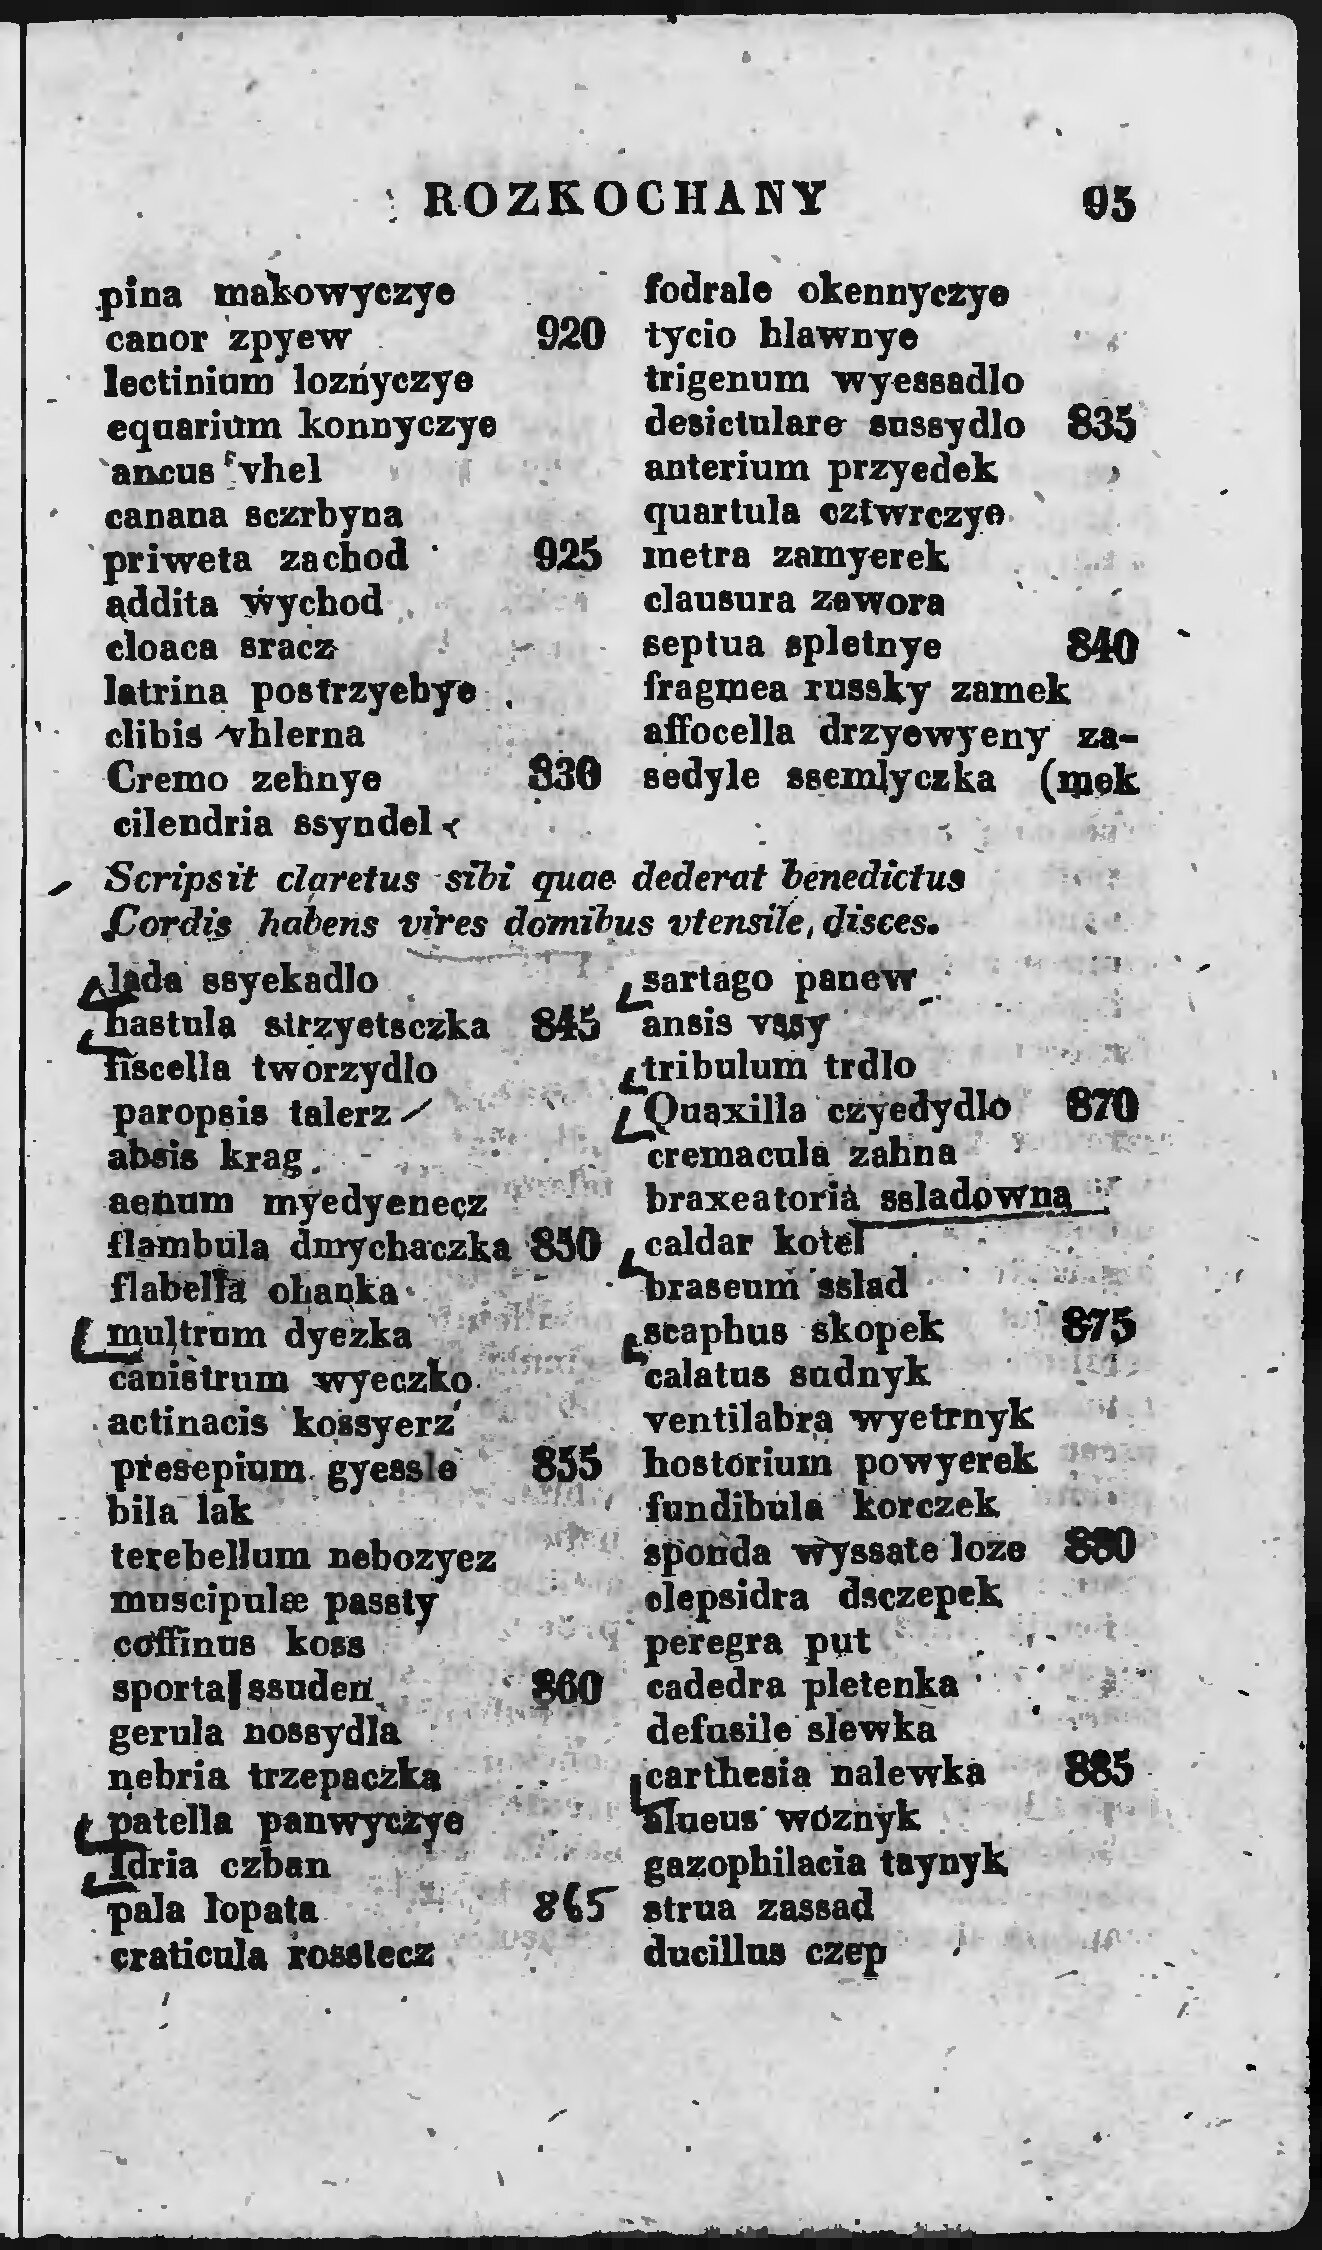 ROZKOCHANY 95
pina makowyczye
canor zpyew 920
lectinium loznyczye
equarium konnyczye
ancus vhel
canana sczrbyna
priweta zachod 925
addita wychod
cloaca sracz
latrina postrzyebye
clibis vhlerna
Cremo zehnye 830
cilendria ssyndel
fodrale okennyczye
tycio hlawnye
trigenum wyessadlo
desictulare sussydlo 835
anterium przyedek
quartula cztwrczye
metra zamyerek
clausura zawora
septua spletnye 840
fragmea russky zamek
affocella drzyewyeny za-
sedyle ssemlyczka (mek
Scripsit claretus sibi quae dederat benedictus
Cordis habens vires domibus vtensile, disces.
lada ssyekadlo
hastula strzyetsczka 845
fiscella tworzydlo
paropsis talerz
absis krag.
aenum myedyenecz
flambula dmychaczka 850
flabella ohanka
multrum dyezka
canistrum wyeczko
actinacis kossyerz
presepium gyessle 855
bila lak
terebellum nebozyez
muscipulæ passty
coffinus koss
sporta ssuden 860
gerula nossydla
nebria trzepaczka
patella panwyczye
Idria czban
pala lopata 865
craticula rosstecz
sartago panew
ansis vssy
tribulum trdlo
Quaxilla czyedydlo 870
cremacula zahna
braxeatoria ssladowna
caldar kotel
braseum sslad
scaphus skopek 875
calatus sudnyk
ventilabra wyetrnyk
hostorium powyerek
fundibula korczek
sponda wyssate loze 880
clepsidra dsczepek
peregra put
cadedra pletenka
defusile slewka
carthesia nalewka 885
alueus woznyk
gazophilacia taynyk
strua zassad
ducillus czep